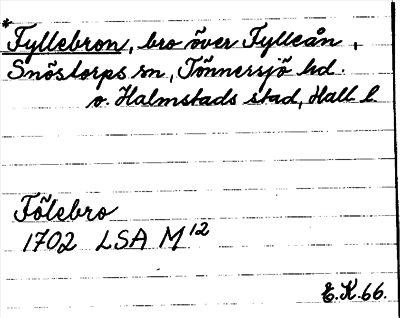 *Fyllebron, bro över Fylleån,
Snöstorps sn, Tönnersjö hd.
o. Halmstads stad, Hall. l.
Fölebro
1702 LSA M¹²
E.K.66.